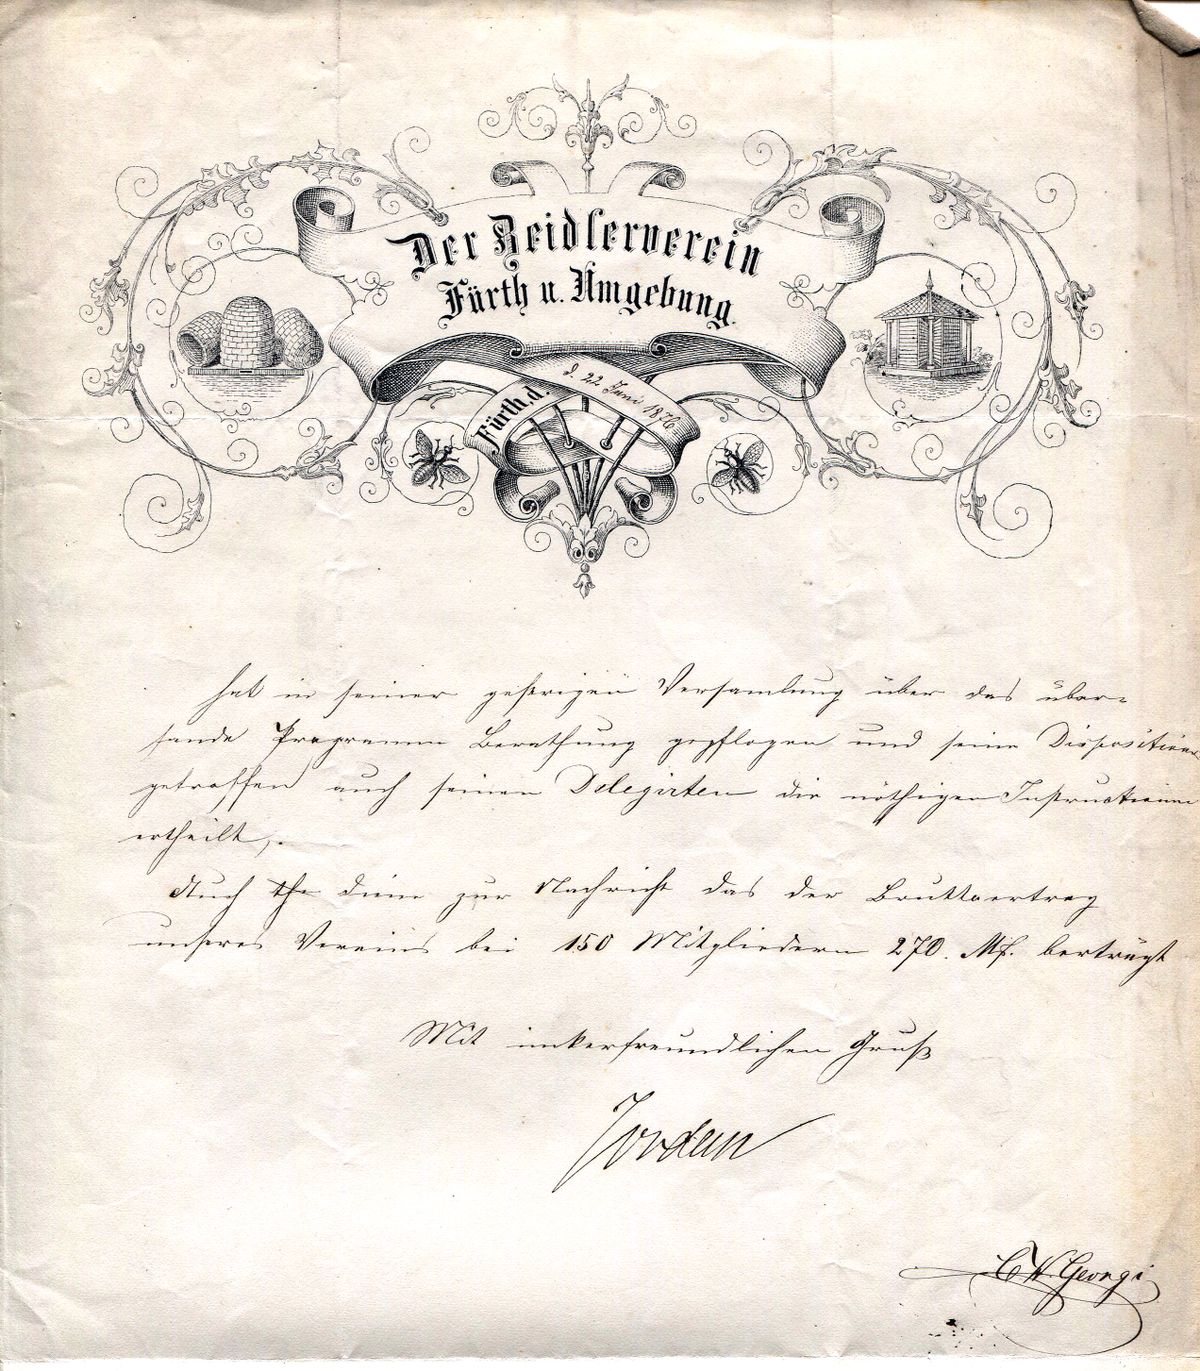 Der Zeidlerverein
Fürth u. Umgebung.
Fürth. d. d. 22 Juni 1876
hat in seiner gestrigen Versamlung über das über-
sande Programm Berathung gepflogen und seine Dispositionen
getroffen auch seinen Delegirten die nöthigen Instructionen
ertheilt,.
Auch diene zur Nachricht das der Bruttoertrag
unseres Vereins bei 150 Mitgliedern 270. Mk. berträgt
Mit imkerfreundlichen Gruß
Jordan
C W. Georgi